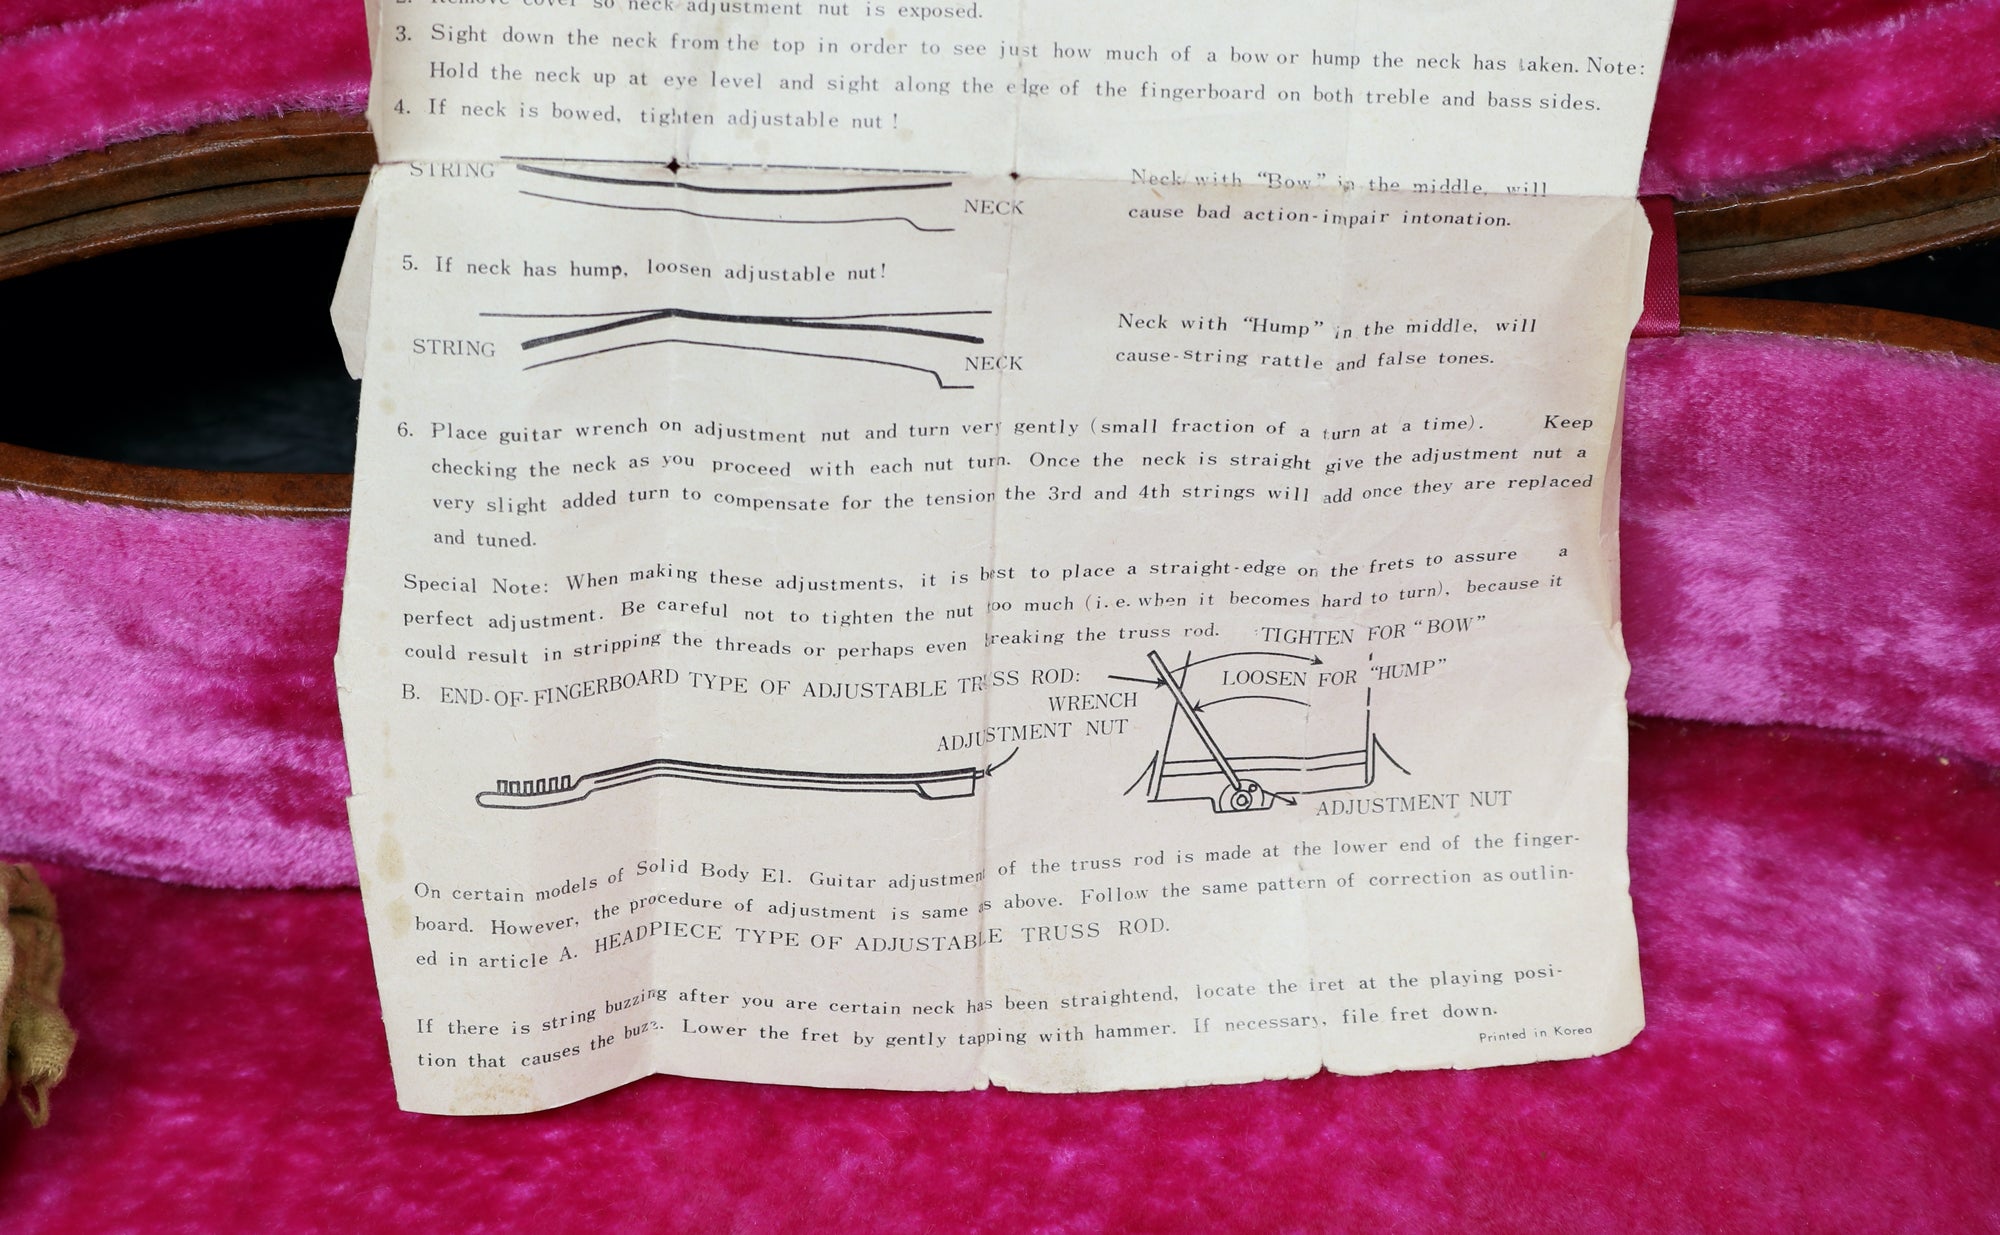 2. Remove cover so neck adjustment nut is exposed.
3. Sight down the neck from the top in order to see just how much of a bow or hump the neck has taken. Note:
Hold the neck up at eye level and sight along the edge of the fingerboard on both treble and bass sides.
4. If neck is bowed, tighten adjustable nut !
STRING
NECK
Neck with “Bow” in the middle, will
cause bad action-impair intonation.
5. If neck has hump, loosen adjustable nut!
STRING
NECK
Neck with “Hump” in the middle, will
cause-string rattle and false tones.
6. Place guitar wrench on adjustment nut and turn very gently (small fraction of a turn at a time). Keep
checking the neck as you proceed with each nut turn. Once the neck is straight give the adjustment nut a
very slight added turn to compensate for the tension the 3rd and 4th strings will add once they are replaced
and tuned.
Special Note: When making these adjustments, it is best to place a straight-edge on the frets to assure a
perfect adjustment. Be careful not to tighten the nut too much (i. e. when it becomes hard to turn), because it
could result in stripping the threads or perhaps even breaking the truss rod.
TIGHTEN FOR “BOW”
LOOSEN FOR “HUMP”
B. END-OF-FINGERBOARD TYPE OF ADJUSTABLE TRUSS ROD:
WRENCH
ADJUSTMENT NUT
ADJUSTMENT NUT
On certain models of Solid Body El. Guitar adjustment of the truss rod is made at the lower end of the finger-
board. However, the procedure of adjustment is same as above. Follow the same pattern of correction as outlin-
ed in article A. HEADPIECE TYPE OF ADJUSTABLE TRUSS ROD.
If there is string buzzing after you are certain neck has been straightend, locate the iret at the playing posi-
tion that causes the buzz. Lower the fret by gently tapping with hammer. If necessary, file fret down.
Printed in Korea